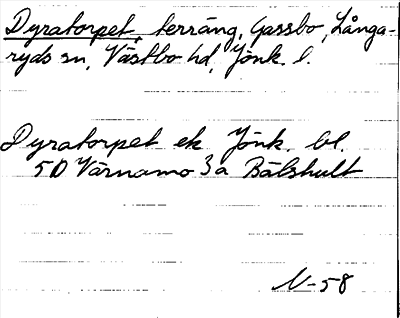 Dyratorpet, terräng, Gassbo, Långa-
ryds sn, Västbo hd, Jönk. l.
Dyratorpet ek Jönk. bl.
5D Värnamo 3a Bälshult
N-58